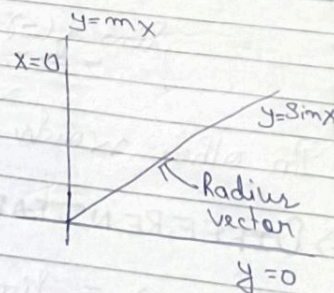 y=mx
x=0
y=Sinx
Radius
vector
y=0